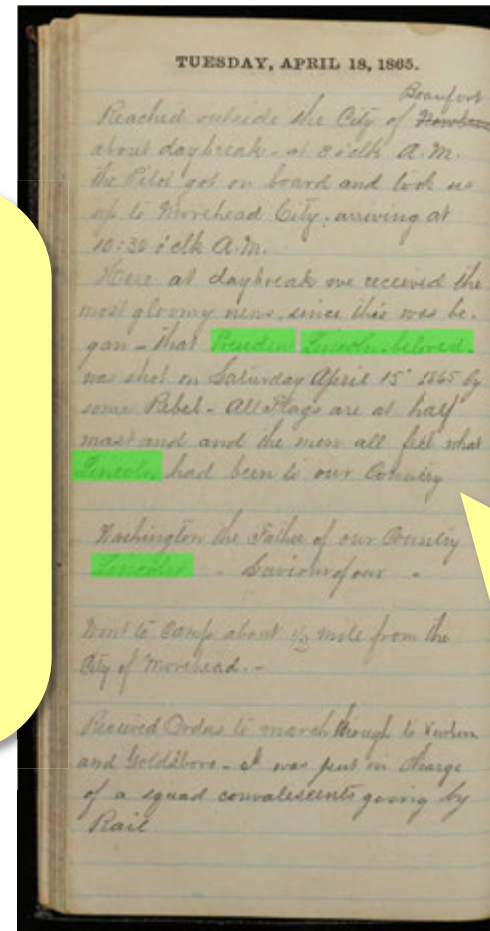 TUESDAY, APRIL 18, 1865.
Beaufort
Reached outside the City of Newbern
about daybreak - at 8 o'clk A.M.
the Pilot got on board and took us
up to Morehead City, arriving at
10:30 o'clk A.M.
Here at daybreak we received the
most gloomy news, since this was be-
gan - that President Lincoln, beloved,
was shot on Saturday April 15" 1865 by
some Rebel - All Flags are at half
mast and and the men all feel what
Lincoln had been to our Country
Washington the Father of our Country
Lincoln " Saviour of our "
Went to Camp about 1/2 mile from the
City of Morehead. -
Received Orders to march through to Newbern
and Goldsboro - I was put in charge
of a squad convalescents going by
Rail